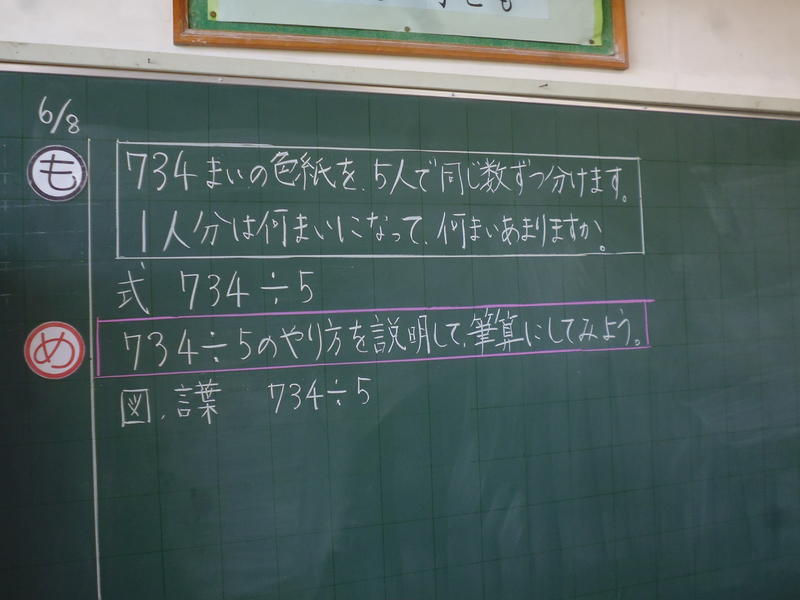 6/8
も
734まいの色紙を、5人で同じ数ずつ分けます。
1人分は何まいになって、何まいあまりますか。
式 734÷5
め
734÷5のやり方を説明して、筆算にしてみよう。
図、言葉 734÷5